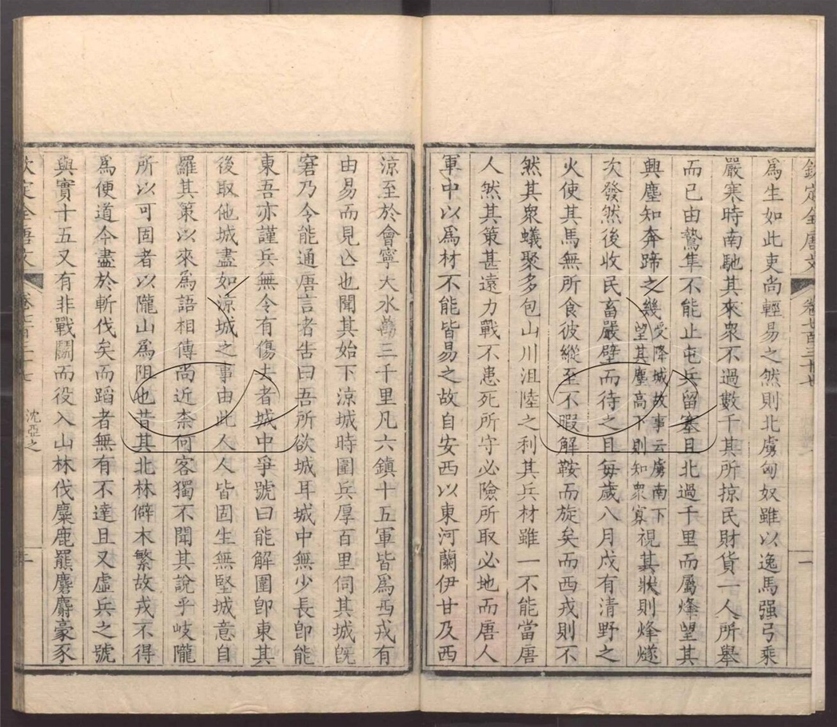 欽定全唐文 卷七百三十七 一
爲生如此吏尚輕易之然則北虜匈奴雖以逸馬强弓乘
嚴寒時南馳其來衆不過數千其所掠民財貨一人所舉
而已由驚隼不能止屯兵留塞且北過千里而屬烽望其
興塵知奔蹄之幾受降城故事云虜南下望其塵高下則知衆寡視其狀則烽燧
次發然後收民畜嚴壁而待之且每歲八月戍有清野之
火使其馬無所食彼縱至不暇解鞍而旋矣而西戎則不
然其衆蟻聚多包山川沮陸之利其兵材雖一不能當唐
人然其策甚遠力戰不患死所守必險所取必地而唐人
軍中以爲材不能皆易之故自安西以東河蘭伊甘及西
涼至於會寧天水萬三千里凡六鎮十五軍皆爲西戎有
由易而見亾也聞其始下涼城時圍兵厚百里伺其城旣
窘乃令能通唐言者告曰吾所欲城耳城中無少長卽能
東吾亦謹兵無令有傷去者城中爭號曰能解圍卽東其
後取他城盡如涼城之事由此人人皆固生無堅城意自
羅其策以來爲語相傳尚近柰何客獨不聞其說乎岐隴
所以可固者以隴山爲阻也昔其北林僻木繁故戎不得
爲便道今盡於斬伐矣而蹈者無有不達且又虛兵之號
與實十五又有非戰鬭而役入山林伐麋鹿羆麝麝豪豕
欽定全唐文 卷七百三十七 沈亞之 二